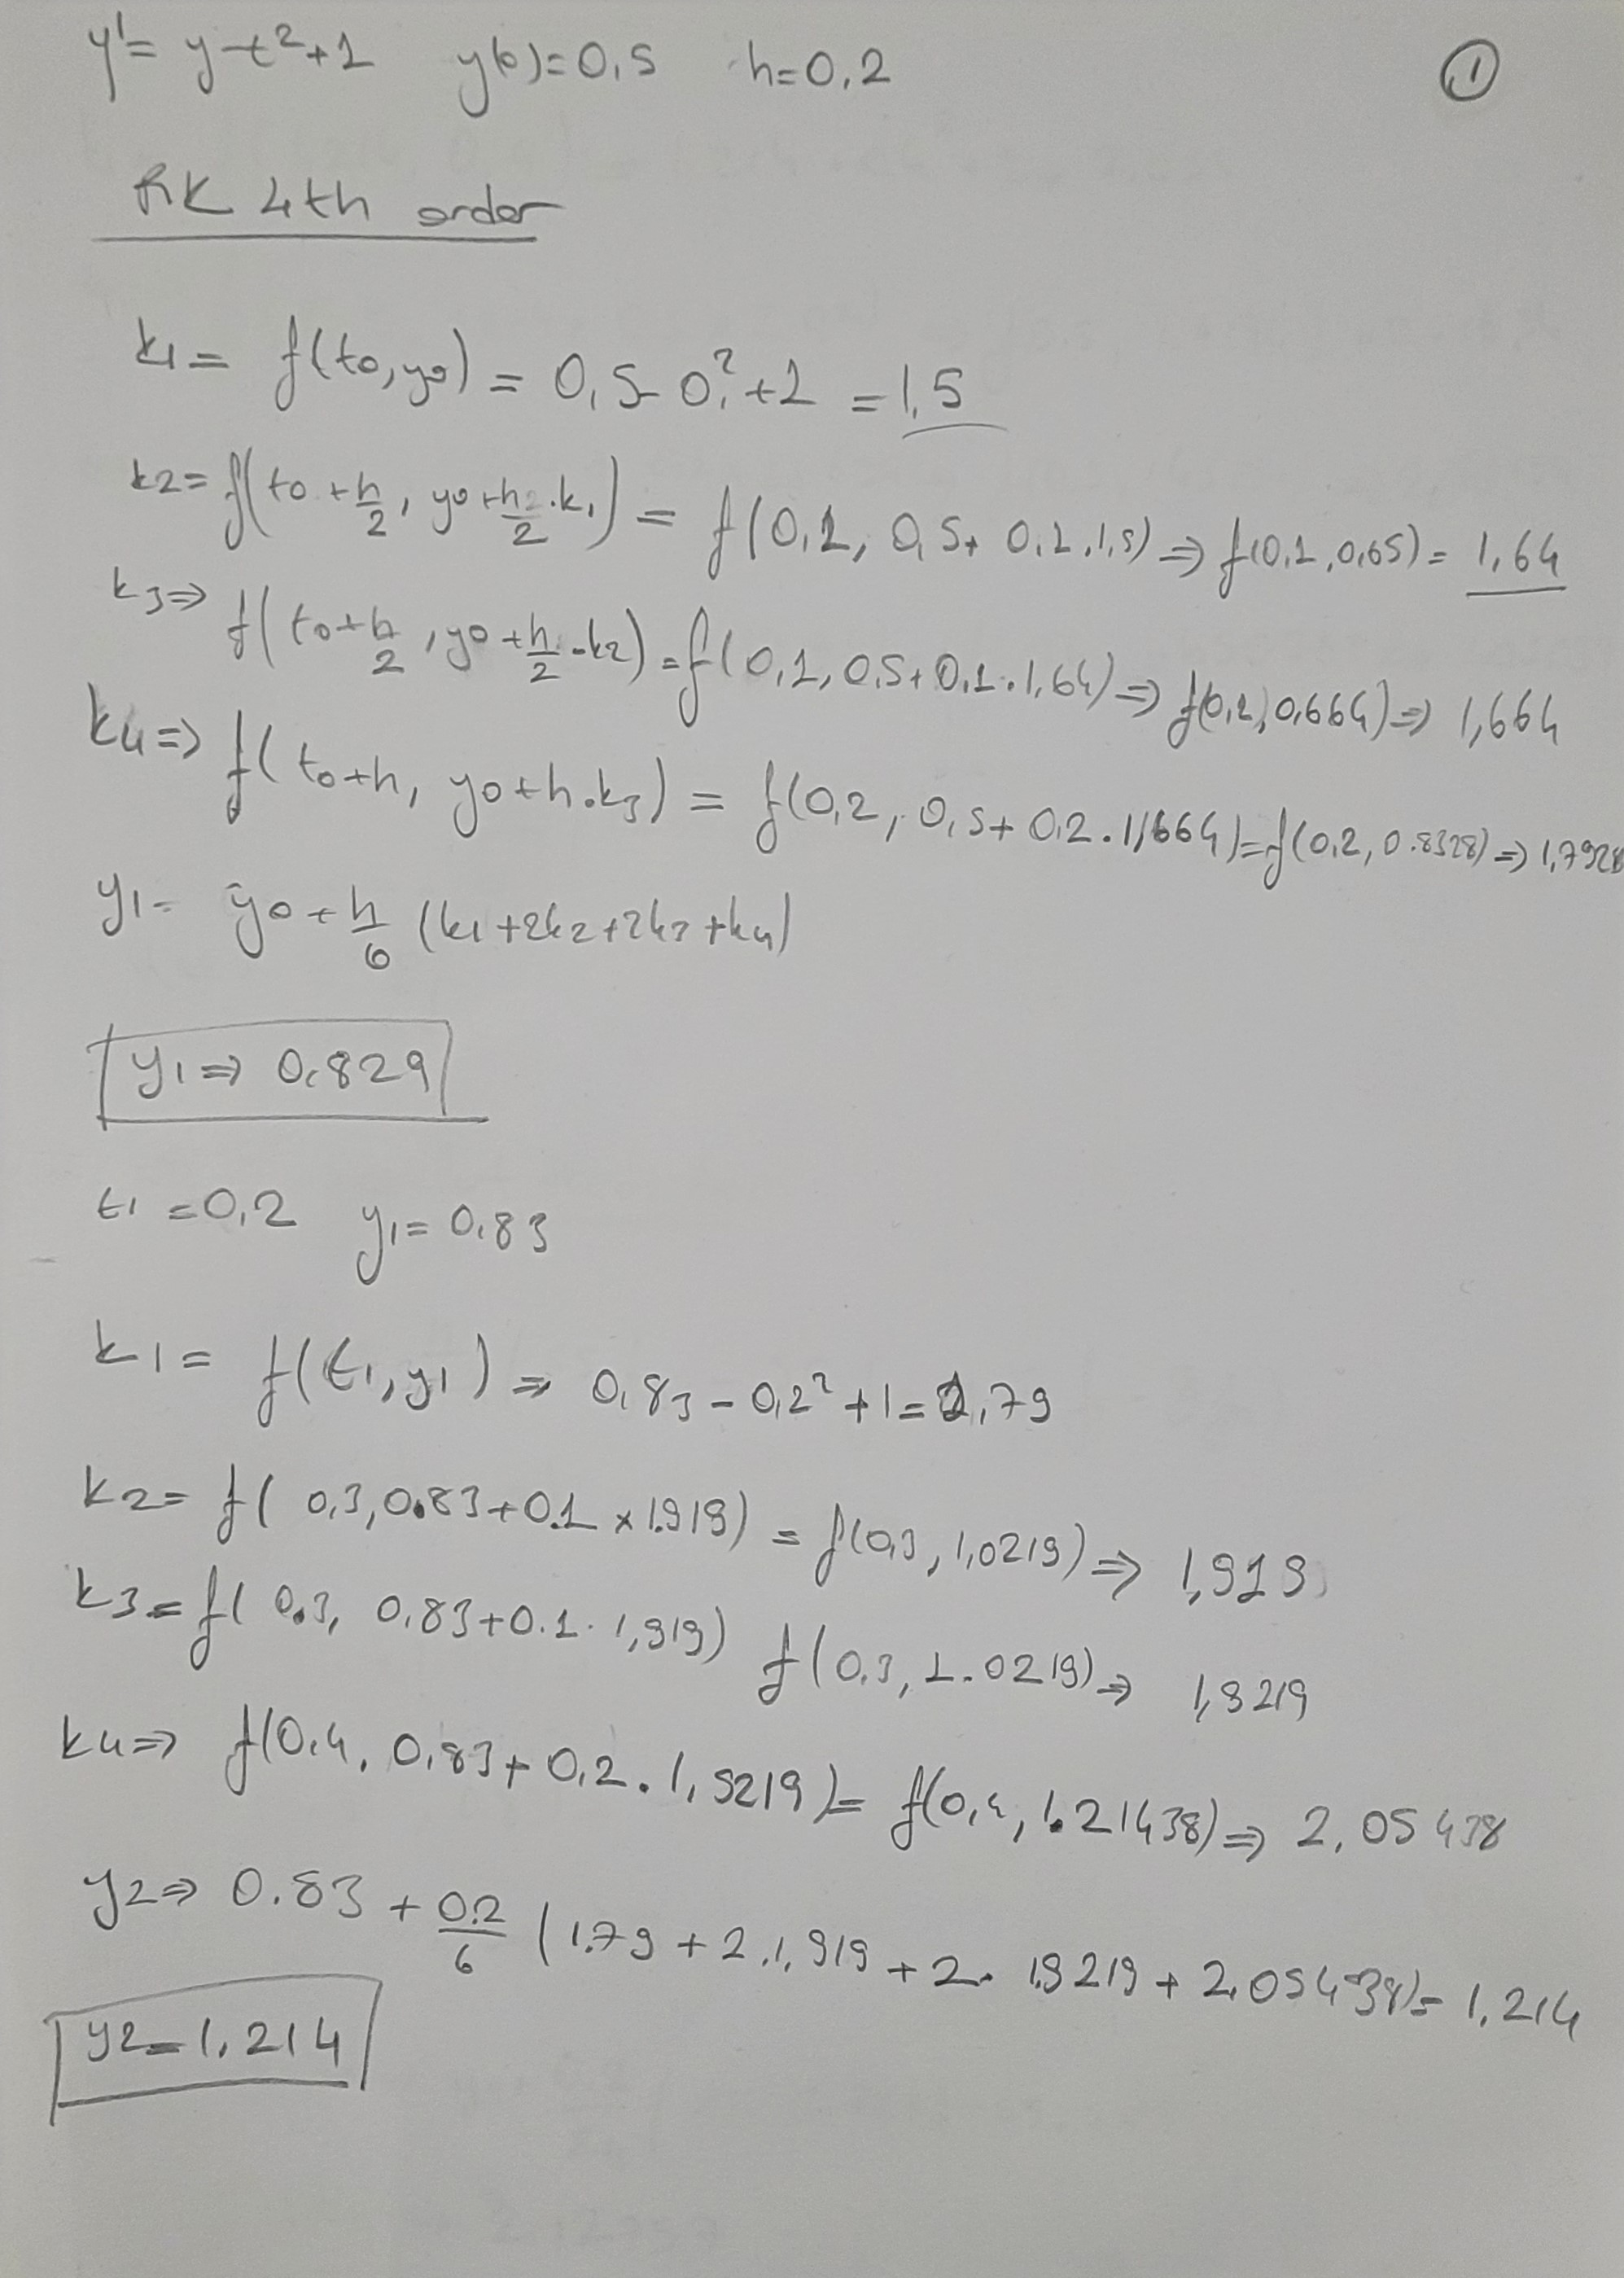 y'= y-t²+1 y(0)=0,5 h=0,2 ①
RK 4th order
k1= f(t0,y0) = 0,5-0²+1 =1,5
k2= f(t0+h/2, y0+h/2.k1) = f(0,1, 0,5+ 0,1.1,5) ⇒ f(0,1,0,65)= 1,64
k3⇒ f(t0+h/2, y0+h/2.k2) = f(0,1, 0,5+0,1.1,64) ⇒ f(0,1,0,664) ⇒ 1,664
k4⇒ f(t0+h, y0+h.k3) = f(0,2, 0,5+ 0,2.1,664)=f(0,2, 0.8328) ⇒ 1,7928
y1= y0+h/6 (k1+2k2+2k3+k4)
y1⇒ 0,829
t1=0,2 y1= 0,83
k1= f(t1,y1) ⇒ 0,83-0,2²+1=1,79
k2= f( 0,3,0.83+0.1 x 1.919) = f(0,3, 1,0219) ⇒ 1,919
k3= f( 0.3, 0,83+0.1. 1,919) f(0.3, 1.0219) ⇒ 1,9219
k4⇒ f(0,4, 0,83+ 0,2. 1,9219)= f(0,4, 1.21438) ⇒ 2,05438
y2⇒ 0.83 + 0.2/6 (1.79+2.1,919+2. 1.9219+2,05438)= 1,214
y2=1,214